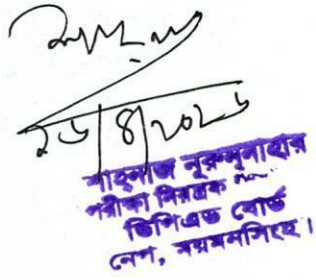 ২৬/৪/২০২৬
শাহনাজ নুরুন্নাহার
পরীক্ষা নিয়ন্ত্রক
ডিপিএড বোর্ড
নেপ, ময়মনসিংহ।